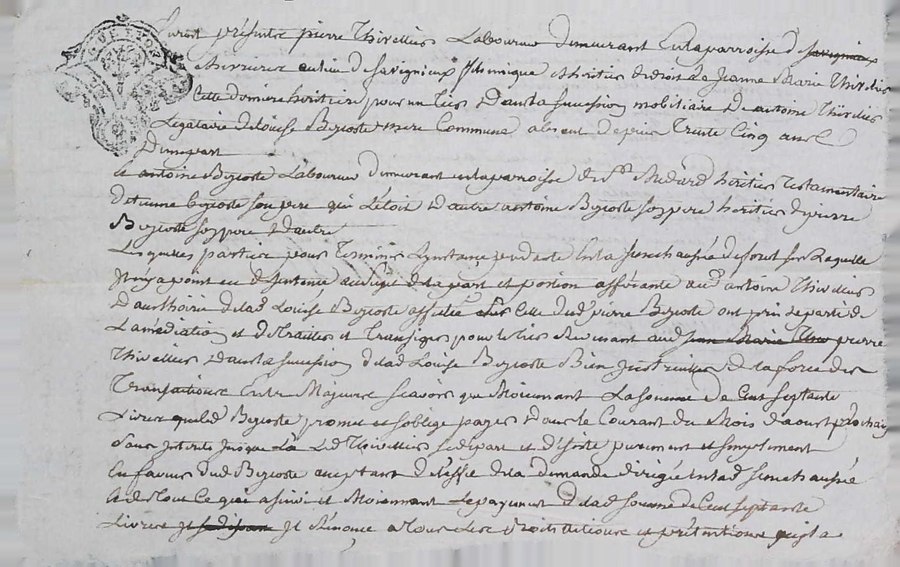 furent présents pierre Thivellier Laboureur demeurant en la parroisse de savignieux
chevrerix au lieu de savignieux & heritier de droit de Jeanne Marie Thivellier
Cette derniere heritiere pour un tiers dans la succession mobiliaire de antoine Thivellier
Legataire de Louise Bejoste mere Commune absent depuis Trente Cinq ans
D'une part
Et antoine Bejoste Laboureur demeurant en la parroisse de St Medard heritier Testamentaire
d'etienne bejoste son pere qui L'etoit d'autre antoine Bejoste son pere heritier de pierre
Bejoste son pere d'autre
Lesquelles parties pour Terminer L'instance pendante En la senechaussée de forest sur Laquelle
Il n'y a point eu de sentence au sujet de la part et portion afférante aud antoine Thivellier
Dans l'hoirie de lad Louise Bejoste Celle dud pierre Bejoste ont pris de part
La médiation et de Traitter et Transiger pour le tiers Revenant aud Jean Marie pierre
Thivellier dans la succession de lad Louise Bejoste Bien Instruites de la force des
Transactions Entre Majeurs scavoir que Moiennant La somme de Cent septante
Livres que led Bejoste promet et s'oblige payer dans le Courant du Mois d'aoust prochain
sans Interets Jusque La Led Thivellier se départ et desiste purement et simplement
En faveur dud Bejoste acceptant de l'effet de la demande dirigée en lad senechaussée
Et de Tout Ce qui a suivi et Moiennant Le payement de lad somme de Cent septante
Livres Il Renonce a Tous Les droits actions et prétentions qu'il a